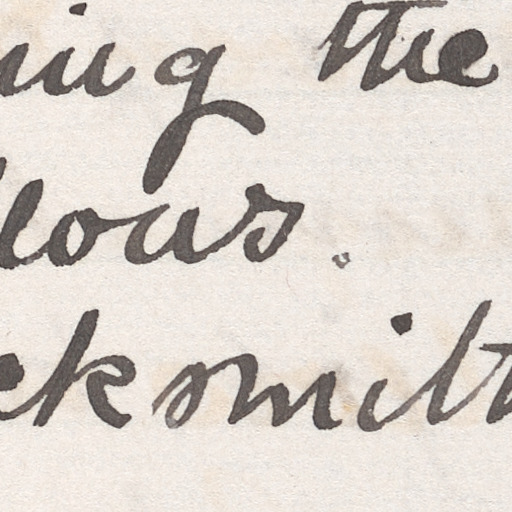 ing the
llows.
cksmit